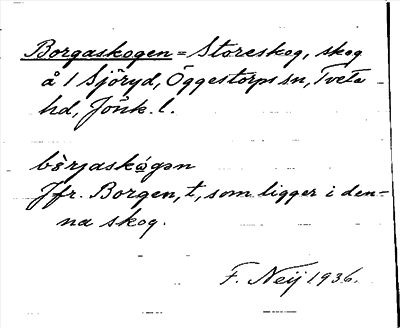 Borgaskogen = Storeskog, skog
å 1 Sjöryd, Öggestorps sn, Tveta
hd, Jönk. l.
bò̀rjaskógən
Jfr. Borgen, t, som ligger i den-
na skog.
F. Neij 1936.